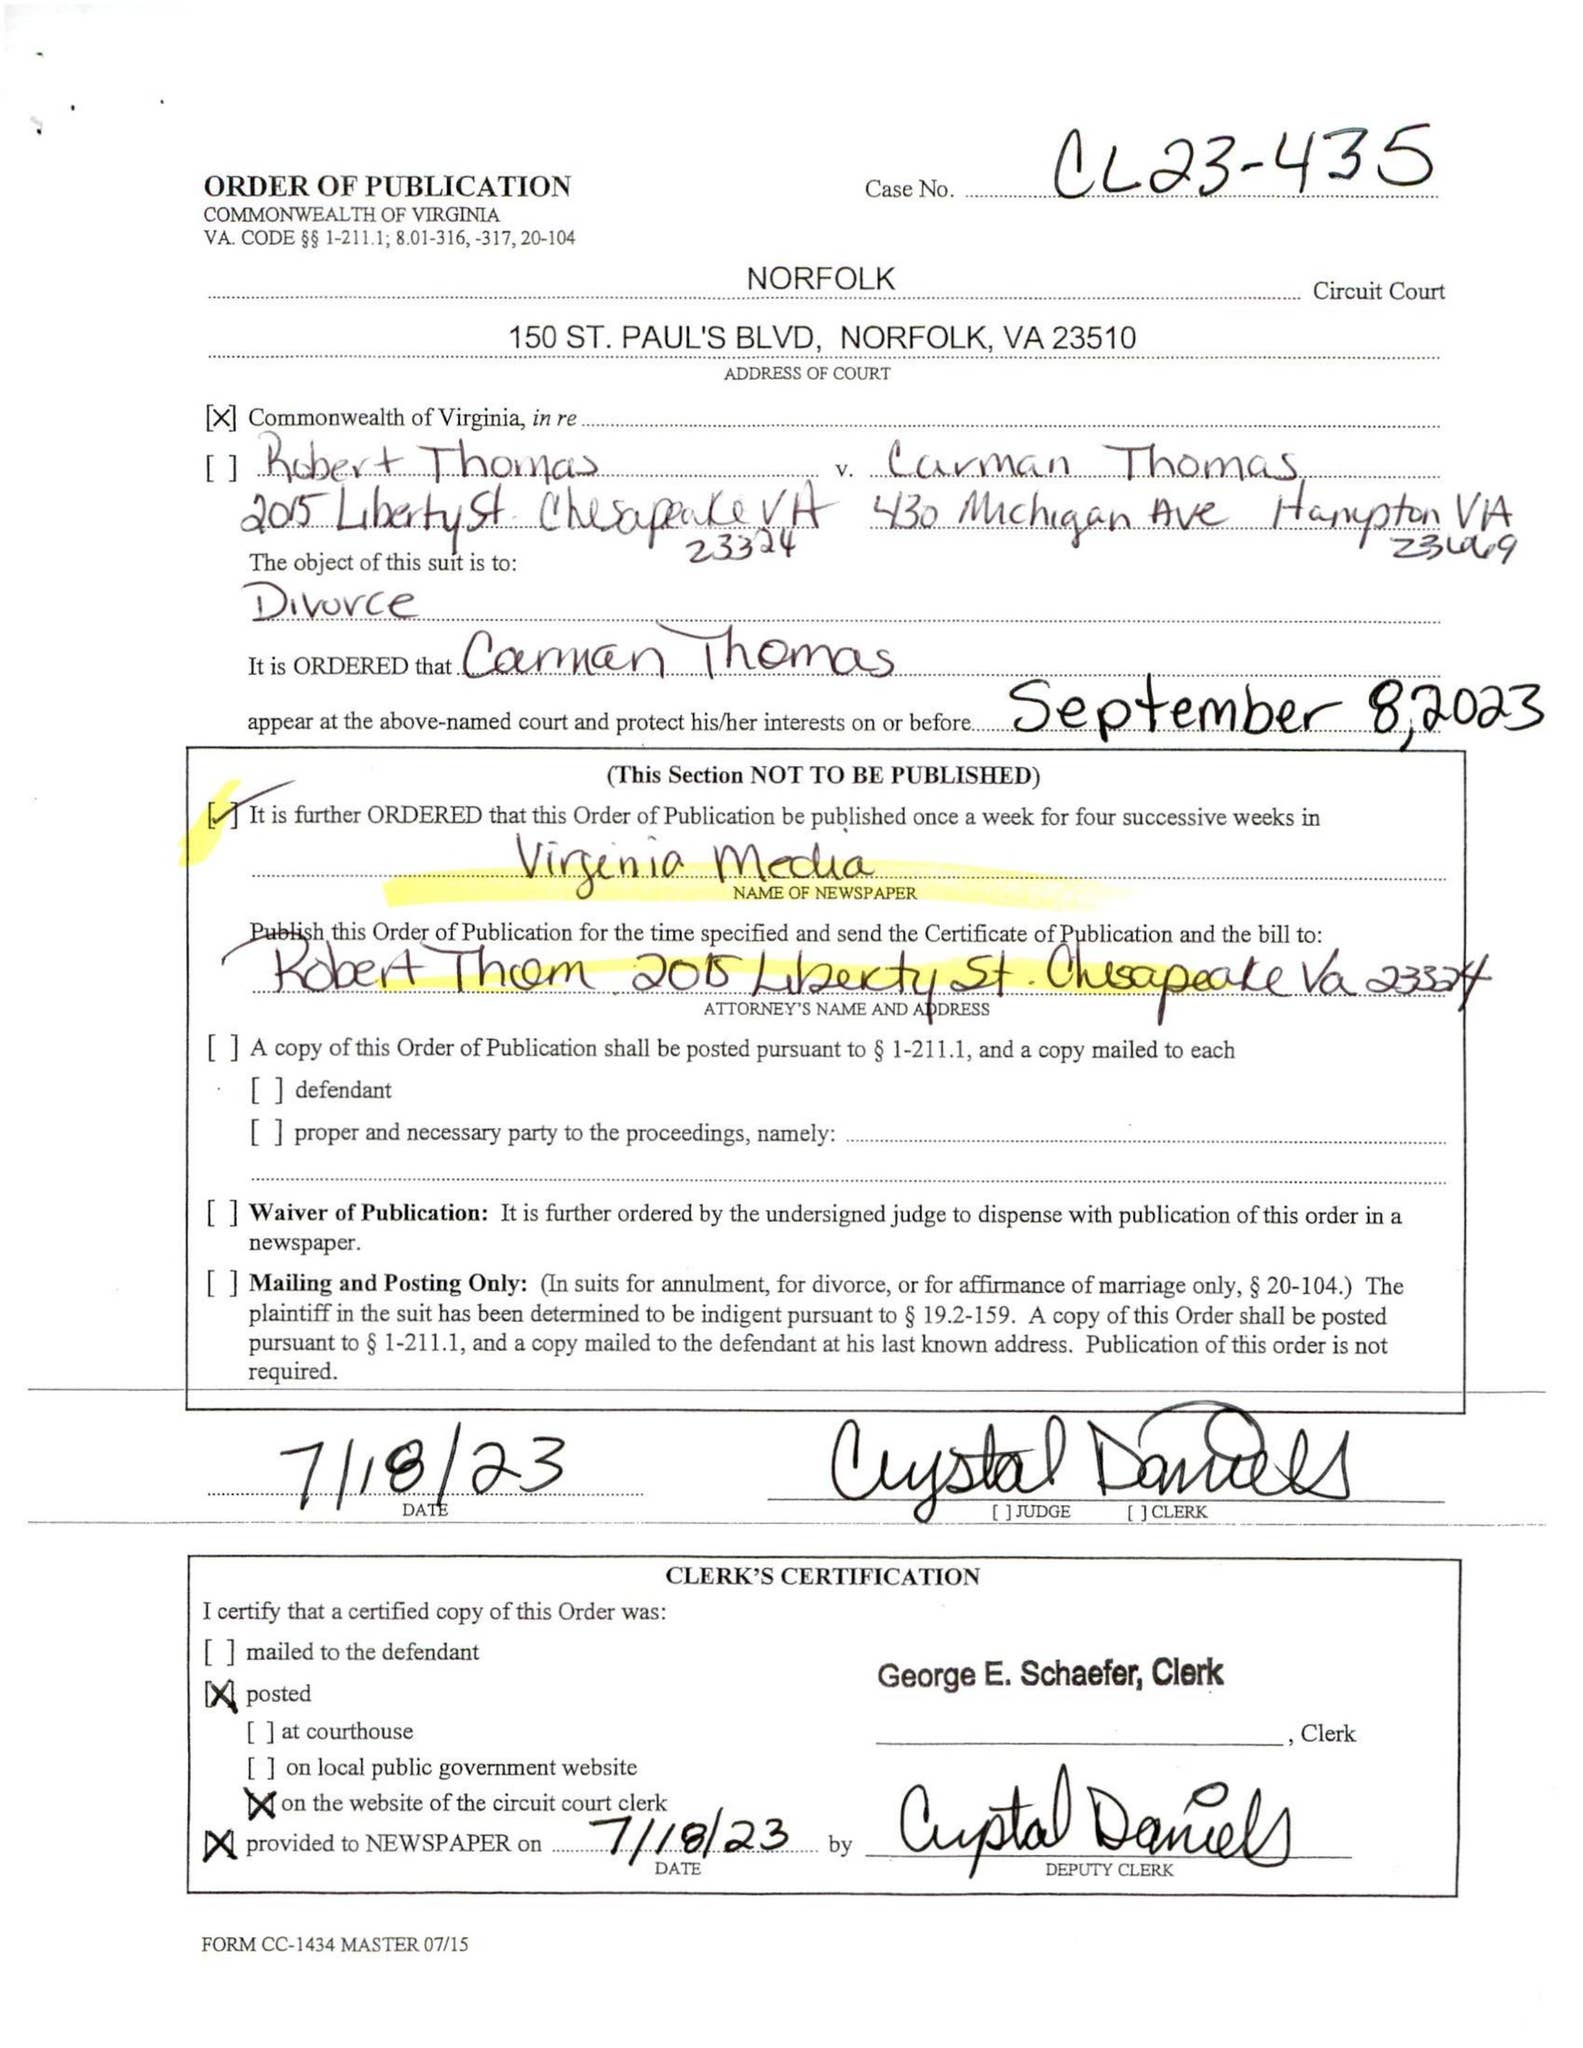 CL23-435
ORDER OF PUBLICATION Case No.
COMMONWEALTH OF VIRGINIA
VA. CODE §§ 1-211.1; 8.01-316, -317, 20-104
NORFOLK
Circuit Court
150 ST. PAUL'S BLVD, NORFOLK, VA 23510
ADDRESS OF COURT
[X] Commonwealth of Virginia, in re
[ ] Robert Thomas v. Carman Thomas
2015 Liberty St. Chesapeake VA 430 Michigan Ave Hampton VA
23324 23669
The object of this suit is to:
Divorce
It is ORDERED that Carman Thomas
appear at the above-named court and protect his/her interests on or before September 8, 2023
(This Section NOT TO BE PUBLISHED)
[✓] It is further ORDERED that this Order of Publication be published once a week for four successive weeks in
Virginia Media
NAME OF NEWSPAPER
Publish this Order of Publication for the time specified and send the Certificate of Publication and the bill to:
Robert Thom 2015 Liberty St. Chesapeake Va 23324
ATTORNEY'S NAME AND ADDRESS
[ ] A copy of this Order of Publication shall be posted pursuant to § 1-211.1, and a copy mailed to each
[ ] defendant
[ ] proper and necessary party to the proceedings, namely:
[ ] Waiver of Publication: It is further ordered by the undersigned judge to dispense with publication of this order in a
newspaper.
[ ] Mailing and Posting Only: (In suits for annulment, for divorce, or for affirmance of marriage only, § 20-104.) The
plaintiff in the suit has been determined to be indigent pursuant to § 19.2-159. A copy of this Order shall be posted
pursuant to § 1-211.1, and a copy mailed to the defendant at his last known address. Publication of this order is not
required.
7/18/23 Crystal Daniels
DATE [ ] JUDGE [ ] CLERK
CLERK'S CERTIFICATION
I certify that a certified copy of this Order was:
[ ] mailed to the defendant
George E. Schaefer, Clerk
[X] posted
[ ] at courthouse , Clerk
[ ] on local public government website
[X] on the website of the circuit court clerk
[X] provided to NEWSPAPER on 7/18/23 by Crystal Daniels
DATE DEPUTY CLERK
FORM CC-1434 MASTER 07/15